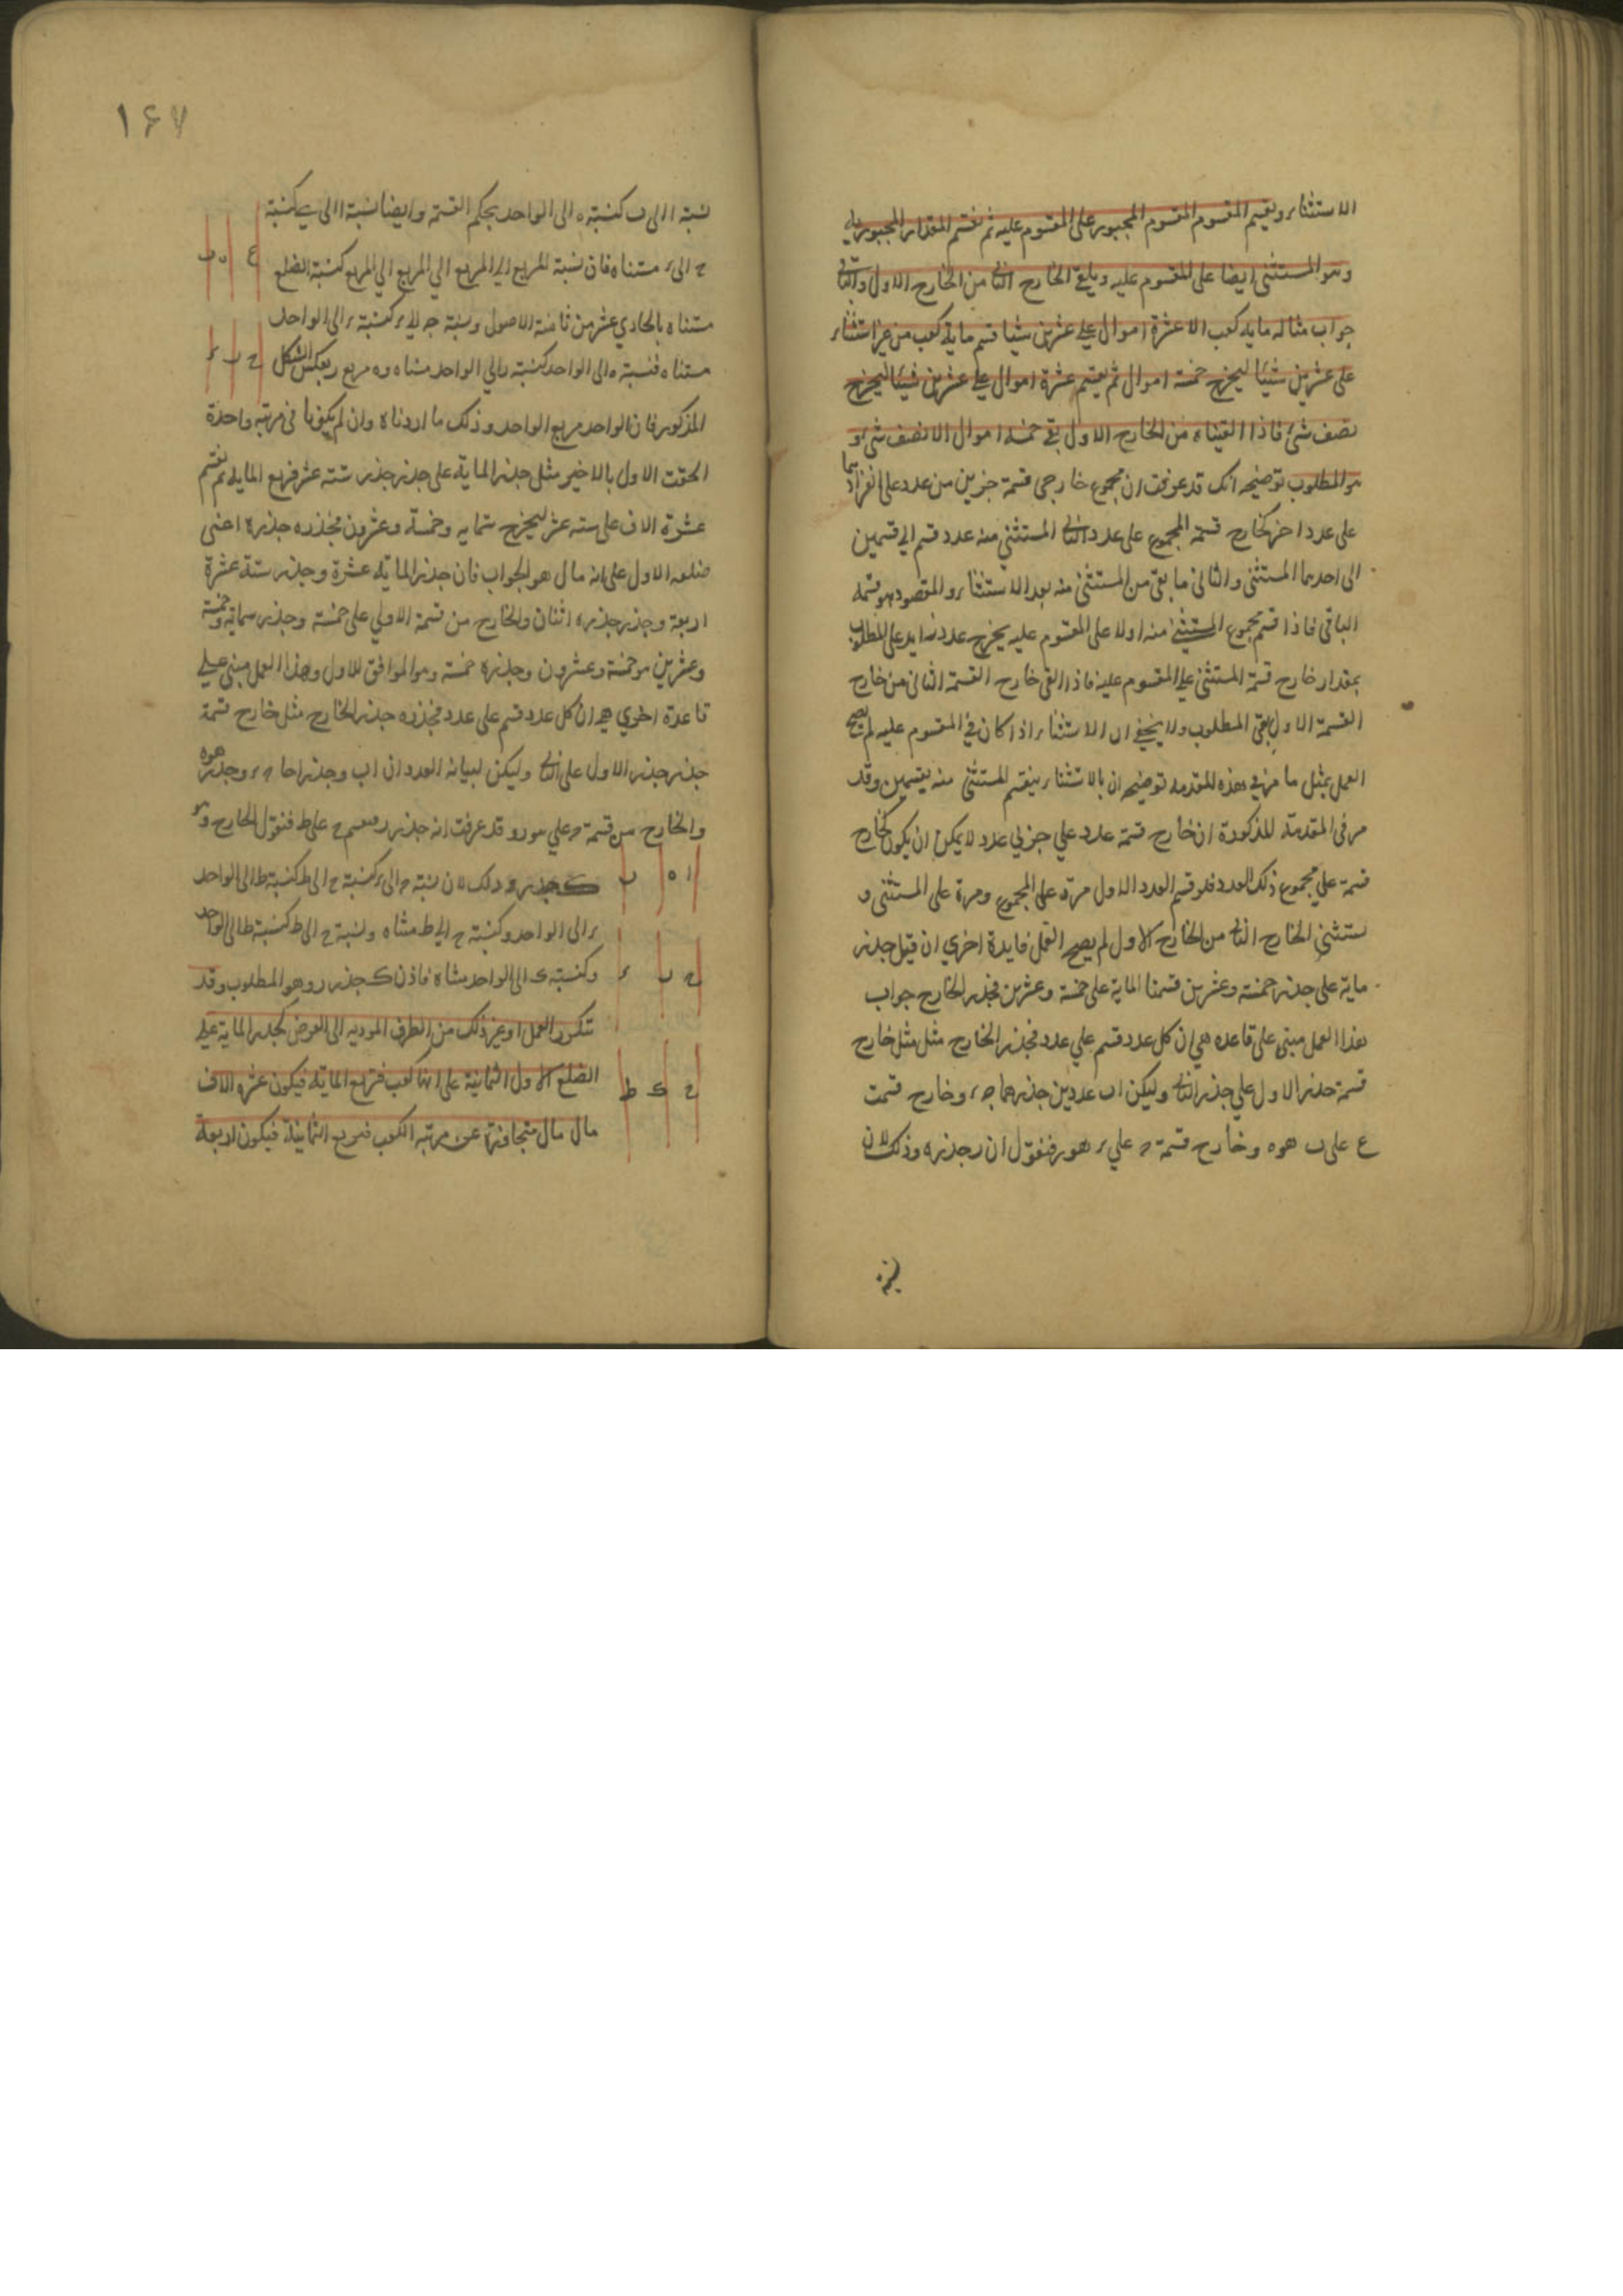 الاستثناء ويقسم المقسوم المقسوم المجبور على المقسوم عليه ثم نقسم المقدار المجبور به
وهو المستثنى ايضا على المقسوم عليه ويلقى الخارج الثانى من الخارج الاول والباقى
جواب مثاله مايه كعب الا عشرة اموال على عشرين شيا قسم ماية كعب من غير استثناء
على عشرين شيئا ليخرج خمسة اموال ثم يقسم عشرة اموال على عشرين شيئا ليخرج
نصف شئ فاذا القيناه من الخارج الاول بقى خمسه اموال الا نصف شئ و
هو المطلوب توضيحه انك قد عرفت ان مجموع خارجى قسمة جزين من عدد على انفرادهما
على عدد اخر كخارج قسمة المجموع على عدد الثانى المستثنى منه عدد قسم الى قسمين
الى احدهما المستثنى والثانى ما بقى من المستثنى منه بعد الاستثناء والمقصود هو قسمة
الباقى فاذا قسم مجموع المستثنى منه اولا على المقسوم عليه يخرج عدد زايد على المطلوب
بمقدار خارج قسمة المستثنى على المقسوم عليه فاذا القى خارج القسمة الثانى من خارج
القسمة الاول بقى المطلوب ولا يخفى ان الاستثناء اذا كان فى المقسوم عليه لم يصح
العمل بمثل ما مر فى هذه المقدمه توضيحه ان بالاستثناء ينقسم المستثنى منه بقسمين وقد
مر فى المقدمة المذكورة ان خارج قسمة عدد على جزئى عدد لا يمكن ان يكون كخارج
قسمة على مجموع ذلك العدد فلو قسم العدد الاول مرة على المجموع ومرة على المستثنى و
يستثنى الخارج الثانى من الخارج الاول لم يصح العمل فايدة اخرى ان قيل جذر
ماية على جذر خمسة وعشرين قسمنا الماية على خمسة وعشرين فجذر الخارج جواب
هذا العمل مبنى على قاعده هى ان كل عدد قسم على عدد فجذر الخارج مثل مثل خارج
قسمة جذر الاول على جذر الثانى وليكن ا ب عددين جذرهما ج ر وخارج قسمت
ع على ب هو ه وخارج قسمة ح على ر هو ر فنقول ان ر جذر ه وذلك لان
١٦٧
نسبة ا الى ب كنسبة ه الى الواحد بحكم القسمة وايضا نسبة ا الى ب كنسبة
ح الى ر مثناه فان نسبة المربع الى المربع كنسبة الضلع
مثناه بالحادي عشر من ثامنة الاصول ونسبة ج الى ر كنسبة ر الى الواحد
مثناه فنسبة ه الى الواحد كنسبة ر الى الواحد مثناه و ه مربع ر بعكس الشكل
المذكور فان الواحد مربع الواحد وذلك ما اردناه وان لم يكونا فى مرتبه واحدة
الحقت الاول بالاخير مثل جذر الماية على جذر جذر ستة عشر فربع الماية ثم نقسم
عشرة الاف على سته عشر ليخرج ستمايه وخمسة وعشرون فجذره جذره اعنى
ضلعه الاول على انه مال مال هو الجواب فان جذر الماية عشرة وجذر ستة عشرة
اربعة وجذر جذره اثنان والخارج من قسمة الاولى على خمسة وجذر ستماية وخمسة
وعشرين هو خمسة وعشرون وجذره خمسة وهو الموافق للاول وهذا العمل مبنى على
قاعدة اخرى هى ان كل عدد قسم على عدد فجذره جذر الخارج مثل خارج قسمة
جذر جذر الاول على الثانى وليكن لبيانه العددان ا ب وجذراهما ح ر وجذر
والخارج من قسمة ح على ر هو ر وقد عرفت انه جذر ه ونقسم ح على ط فنقول الخارج وهو
ا ه ب
ك جذر ر وذلك لان نسبة ح الى ر كنسبة ح الى ط كنسبة ط الى الواحد
ر الى الواحد وكنسبة ح الى ط مثناه ونسبة ح الى ط كنسبة ط الى الواحد
ح ر ر
وكنسبة ك الى الواحد مثناه فاذن ك جذر ر وهو المطلوب وقد
تتكرر العمل او غير ذلك من الطرق الموديه الى الغرض كجذر الماية على
الضلع الاول الثمانية على انها كعب فتربع الماية فيكون عشرة الاف
ح ك ط
مال مال متجاوزة عن مرتبة الكعب فنربع الثمانية فيكون اربعة